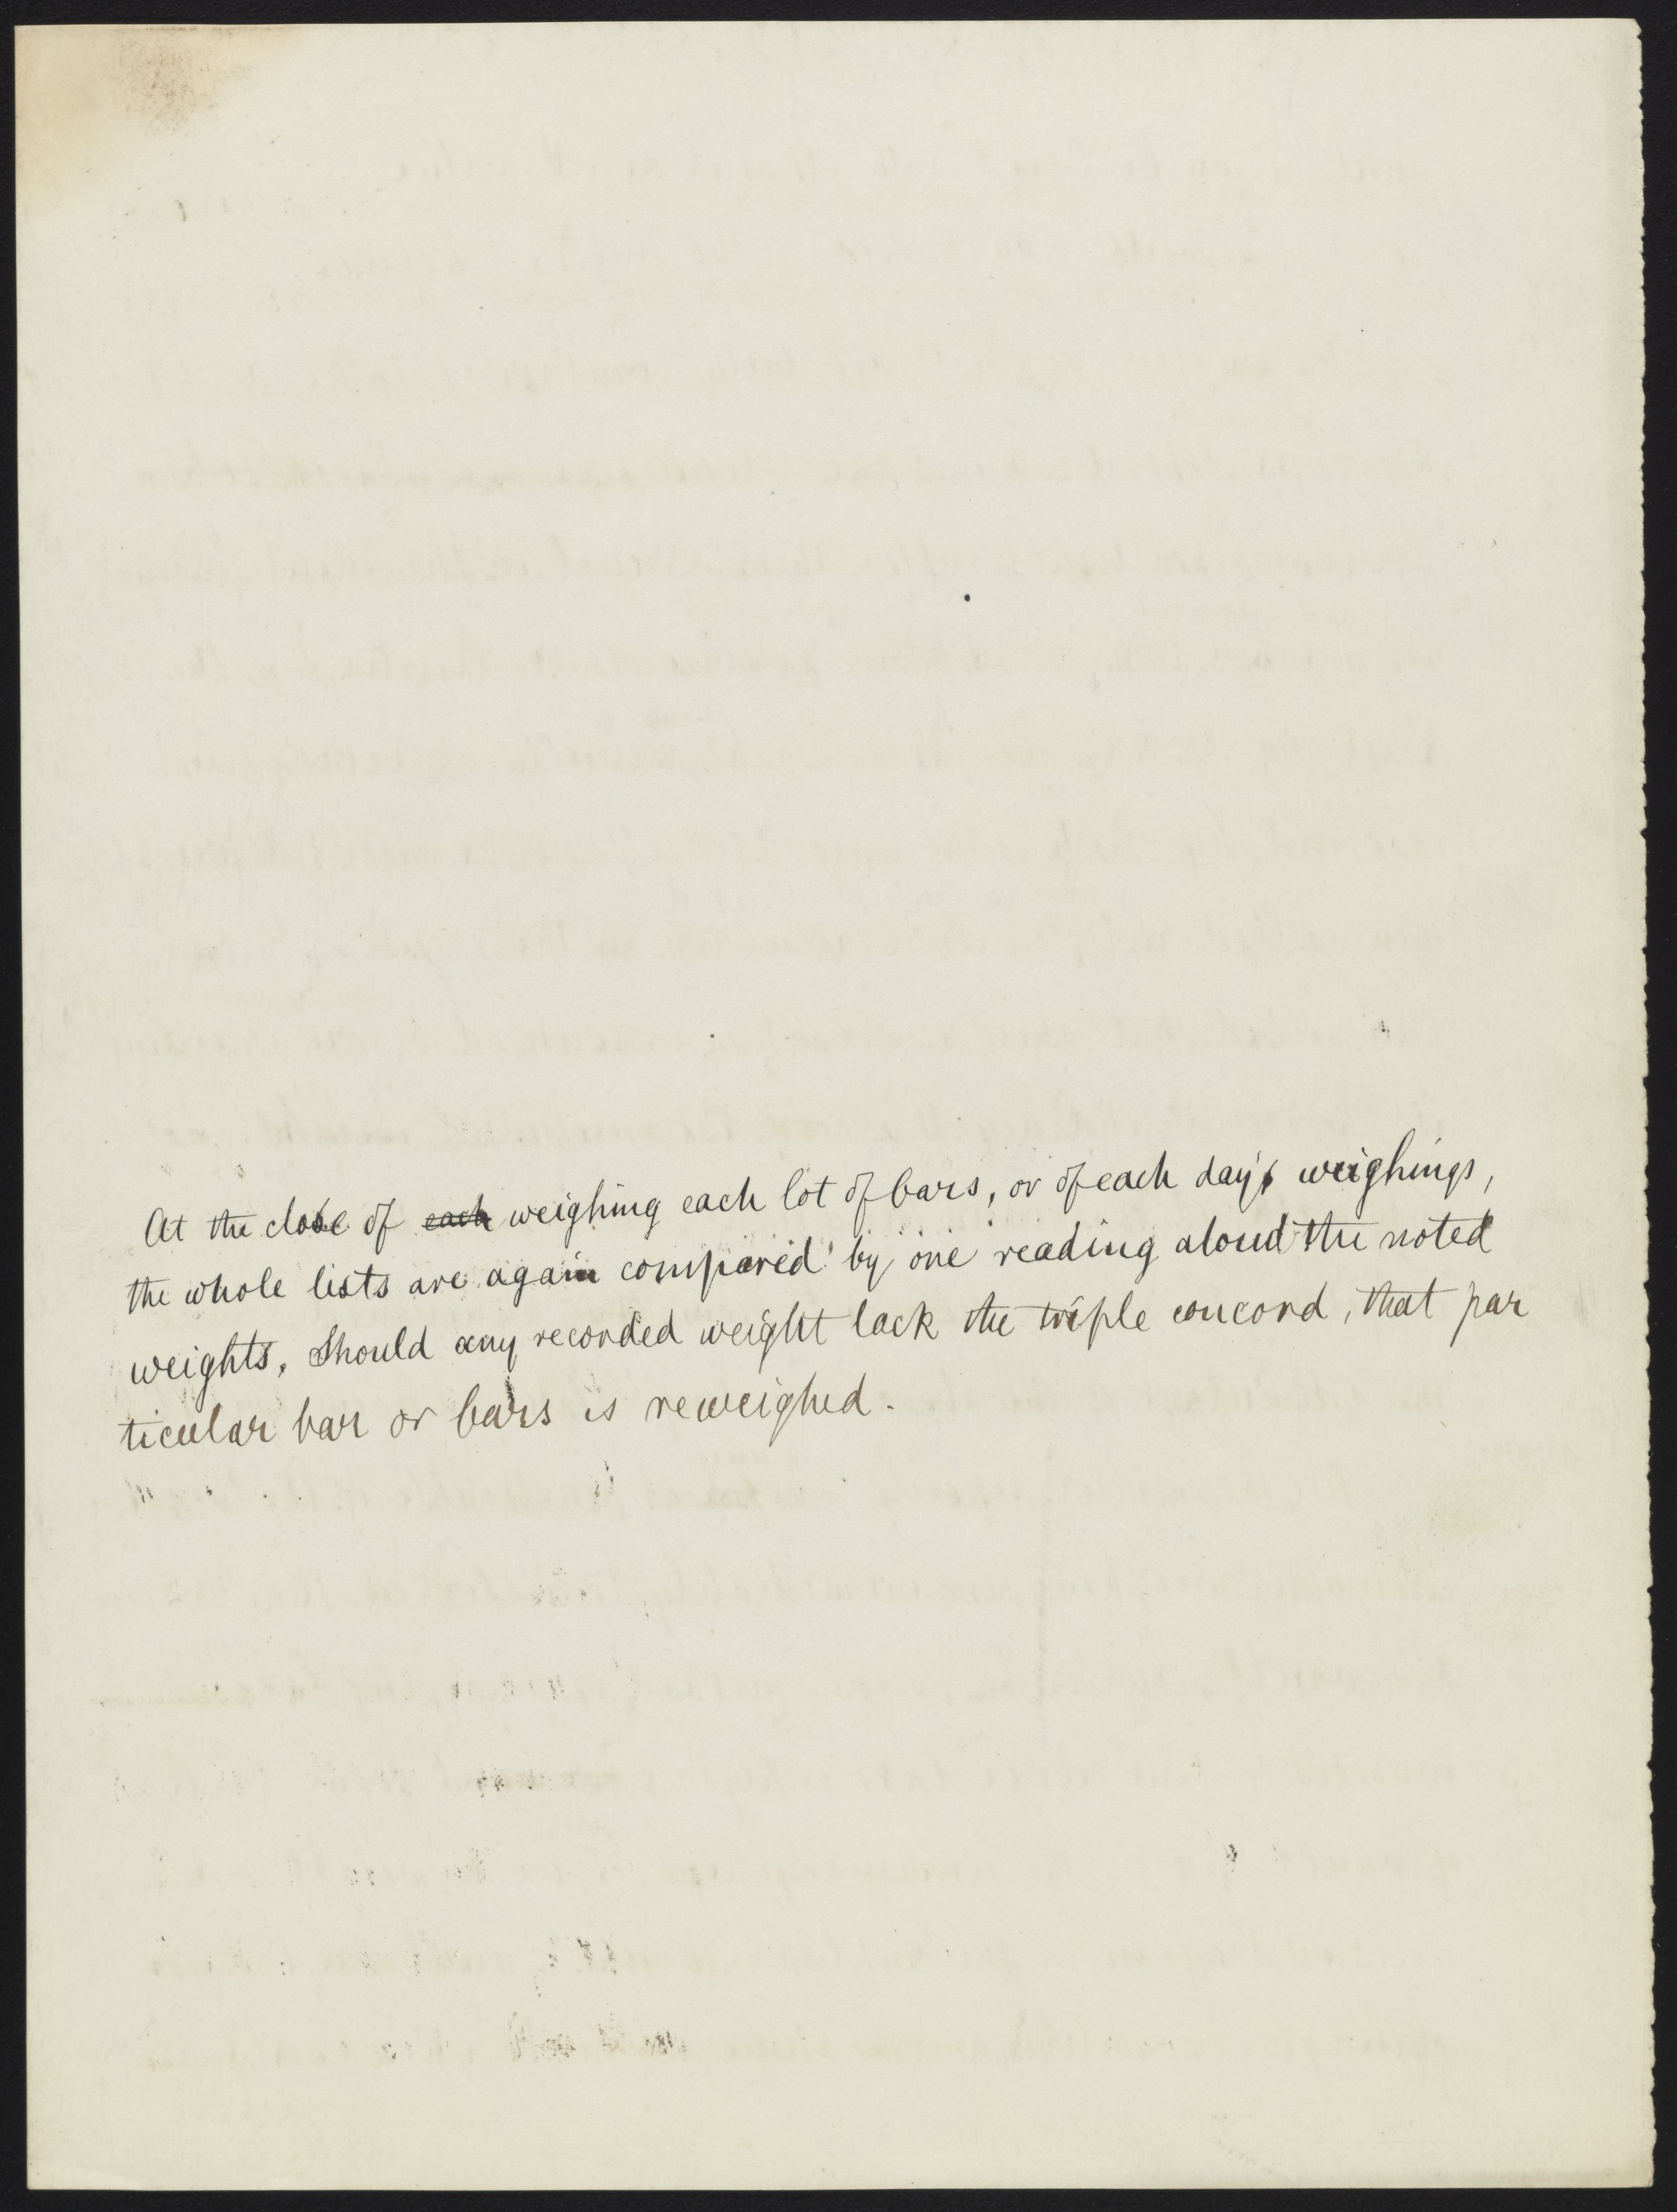 At the close of each weighing each lot of bars, or of each day's weighings,
the whole lists are again compared by one reading aloud the noted
weights, Should any recorded weight lack the triple concord, that par
ticular bar or bars is reweighed.